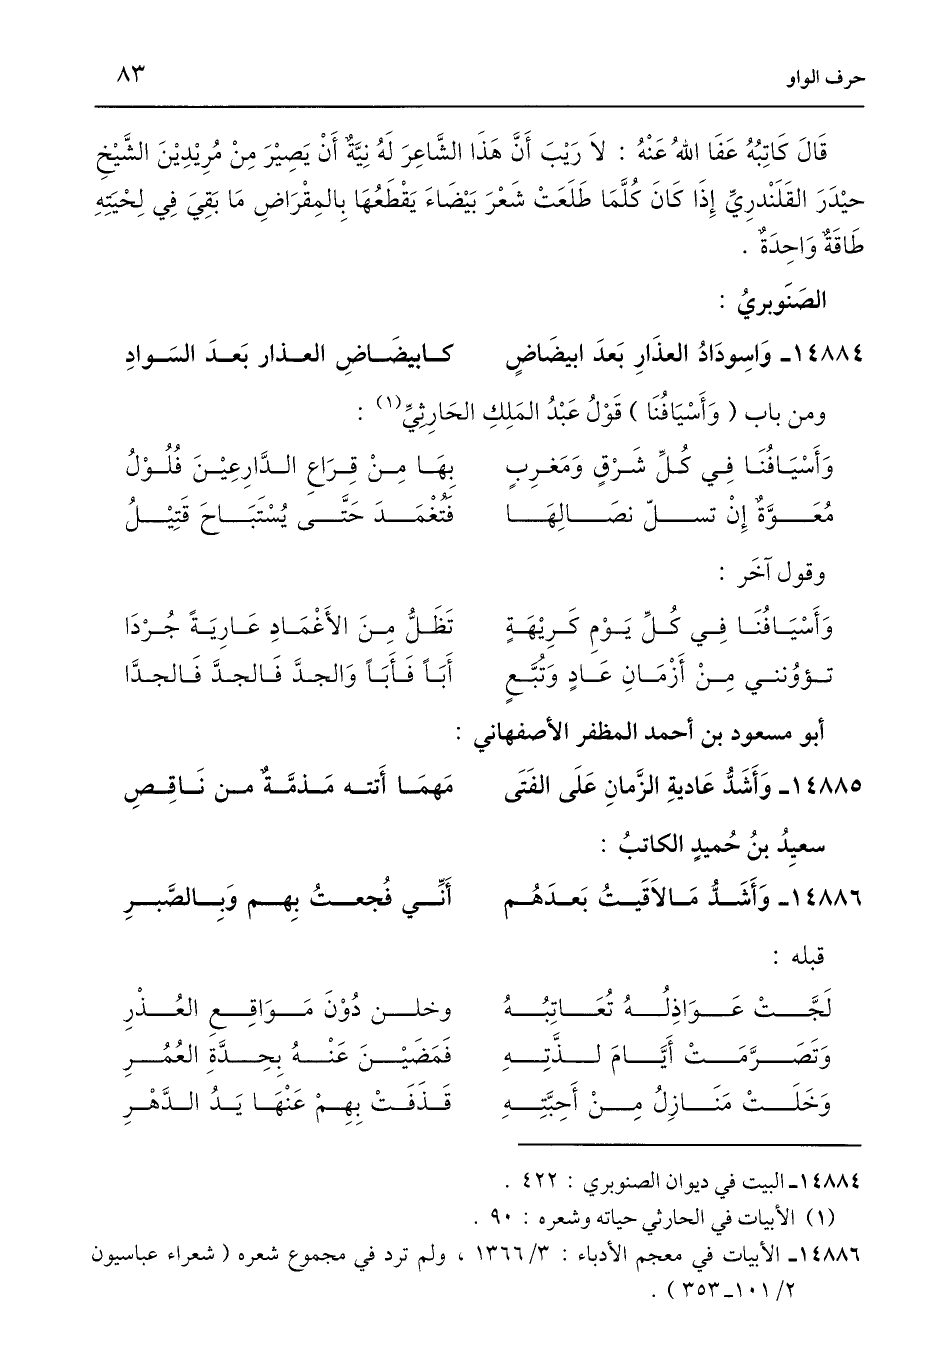 حرف الواو ٨٣
قَالَ كَاتِبُهُ عَفَا اللهُ عَنْهُ : لاَ رَيْبَ أَنَّ هَذَا الشَّاعِرَ لَهُ نِيَّةٌ أَنْ يَصِيْرَ مِنْ مُرِيْدِيْنَ الشَّيْخِ
حيْدَرَ القَلَنْدرِيِّ إِذَا كَانَ كُلَّمَا طَلَعَتْ شَعْرَ بَيْضَاءَ يَقْطَعُهَا بِالمِقْرَاضِ مَا بَقِيَ فِي لِحْيَتِهِ
طَاقَةٌ وَاحِدَةٌ .
الصَنَوبريُ :
١٤٨٨٤ـ وَاسِودَادُ العذَارِ بَعدَ ابيضَاضٍ كـابيضَـاضِ العـذار بَعـدَ السَـوادِ
ومن باب ( وَأَسْيَافُنَا ) قَوْلُ عَبْدُ المَلِكِ الحَارِثِيِّ(١) :
وَأَسْيَـافُنَـا فِـي كُـلِّ شَـرْقٍ وَمَغـربٍ بِهَـا مِـنْ قِـرَاعِ الـدَّارِعِيْـنَ فُلُـوْلُ
مُعَـــوَّةٌ إِنْ تســـلّ نصَـــالِهَـــا فَتُغْمَـــدَ حَتَّـــى يُسْتَبَـــاحَ قَتِيْـــلُ
وقول آخَر :
وَأَسْيَـافُنَـا فِـي كُـلِّ يَـوْمِ كَـرِيْهَـةٍ تَظَـلُّ مِـنَ الأَغْمَـادِ عَـارِيَـةً جُـرْدَا
تـؤوُننـي مِـنْ أَزْمَـانِ عَـادٍ وَتُبَّـعٍ أَبَـاً فَـأَبَـاً وَالجـدَّ فَـالجـدَّ فَـالجـدَّا
أبو مسعود بن أحمد المظفر الأصفهاني :
١٤٨٨٥ـ وَأَشَدُّ عَاديةِ الزَّمانِ عَلَى الفَتَى مَهمَـا أَتتـه مَـذمَّـةٌ مـن نَـاقِـصِ
سعيِدُ بنُ حُميدٍ الكاتبُ :
١٤٨٨٦ـ وَأَشَـدُّ مَـالاَقَيـتُ بَعـدَهُـم أَنِّـي فُجعـتُ بِهـم وَبِـالصَّبـرِ
قبله :
لَجَّـــتْ عَـــوَاذِلُـــهُ تُعَـــاتِبُـــهُ وخلـــن دُوْنَ مَـــوَاقِـــعِ العُـــذْرِ
وَتَصَـــرَّمَـــتْ أَيَّـــامَ لـــذَّتِـــهِ فَمَضَيْـــنَ عَنْـــهُ بِجِـــدَّةِ العُمْـــرِ
وَخَلَـــتْ مَنَـــازِلُ مِـــنْ أَحِبَّتِـــهِ قَـذَفَـتْ بِهِـمْ عَنْهَـا يَـدُ الـدَّهْـرِ
١٤٨٨٤ـ البيت في ديوان الصنوبري : ٤٢٢ .
(١) الأبيات في الحارثي حياته وشعره : ٩٠ .
١٤٨٨٦ـ الأبيات في معجم الأدباء : ٣/ ١٣٦٦ ، ولم ترد في مجموع شعره ( شعراء عباسيون
٢/ ١٠١ـ٣٥٣ ) .